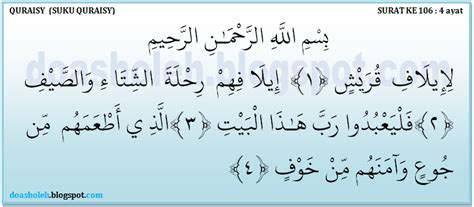 QURAISY (SUKU QURAISY) SURAT KE 106 : 4 ayat
بِسْمِ اللَّهِ الرَّحْمَٰنِ الرَّحِيمِ
لِإِيلَافِ قُرَيْشٍ ﴿١﴾ إِيلَا فِهِمْ رِحْلَةَ الشِّتَا ءِ وَالصَّيْفِ
﴿٢﴾ فَلْيَعْبُدُوا رَبَّ هَٰذَا الْبَيْتِ ﴿٣﴾ الَّذِي أَطْعَمَهُم مِّن
جُوعٍ وَآمَنَهُم مِّنْ خَوْفٍ ﴿٤﴾
doasholeh.blogspot.com
doasholeh.blogspot.com